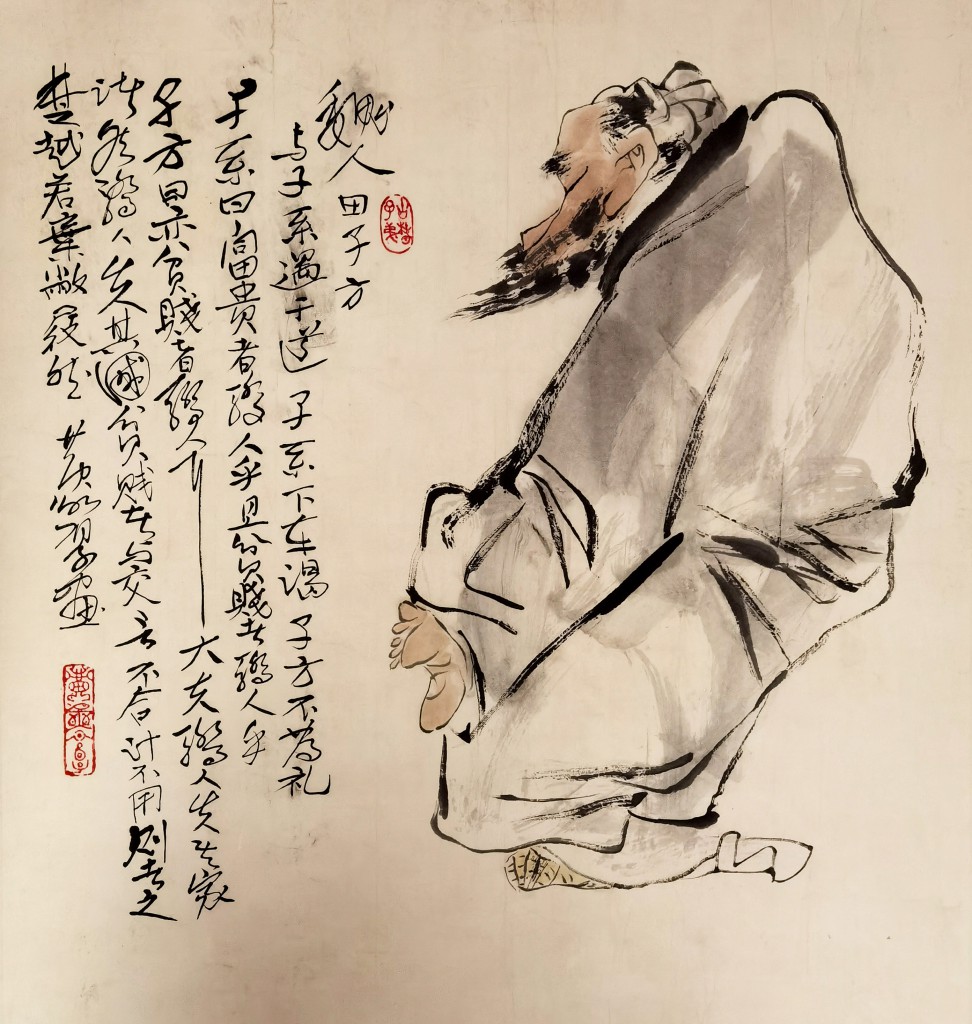 魏人田子方
与子系遇于道子系下车谒子方不為礼
子系曰富贵者骄人乎且貧賤者驕人乎
子方曰亦貧賤者驕人耳大夫驕人失其家
诸侯驕人失其国貧賤者与交言不合计不用则去之
楚越若棄敝屣然 黄永厚画